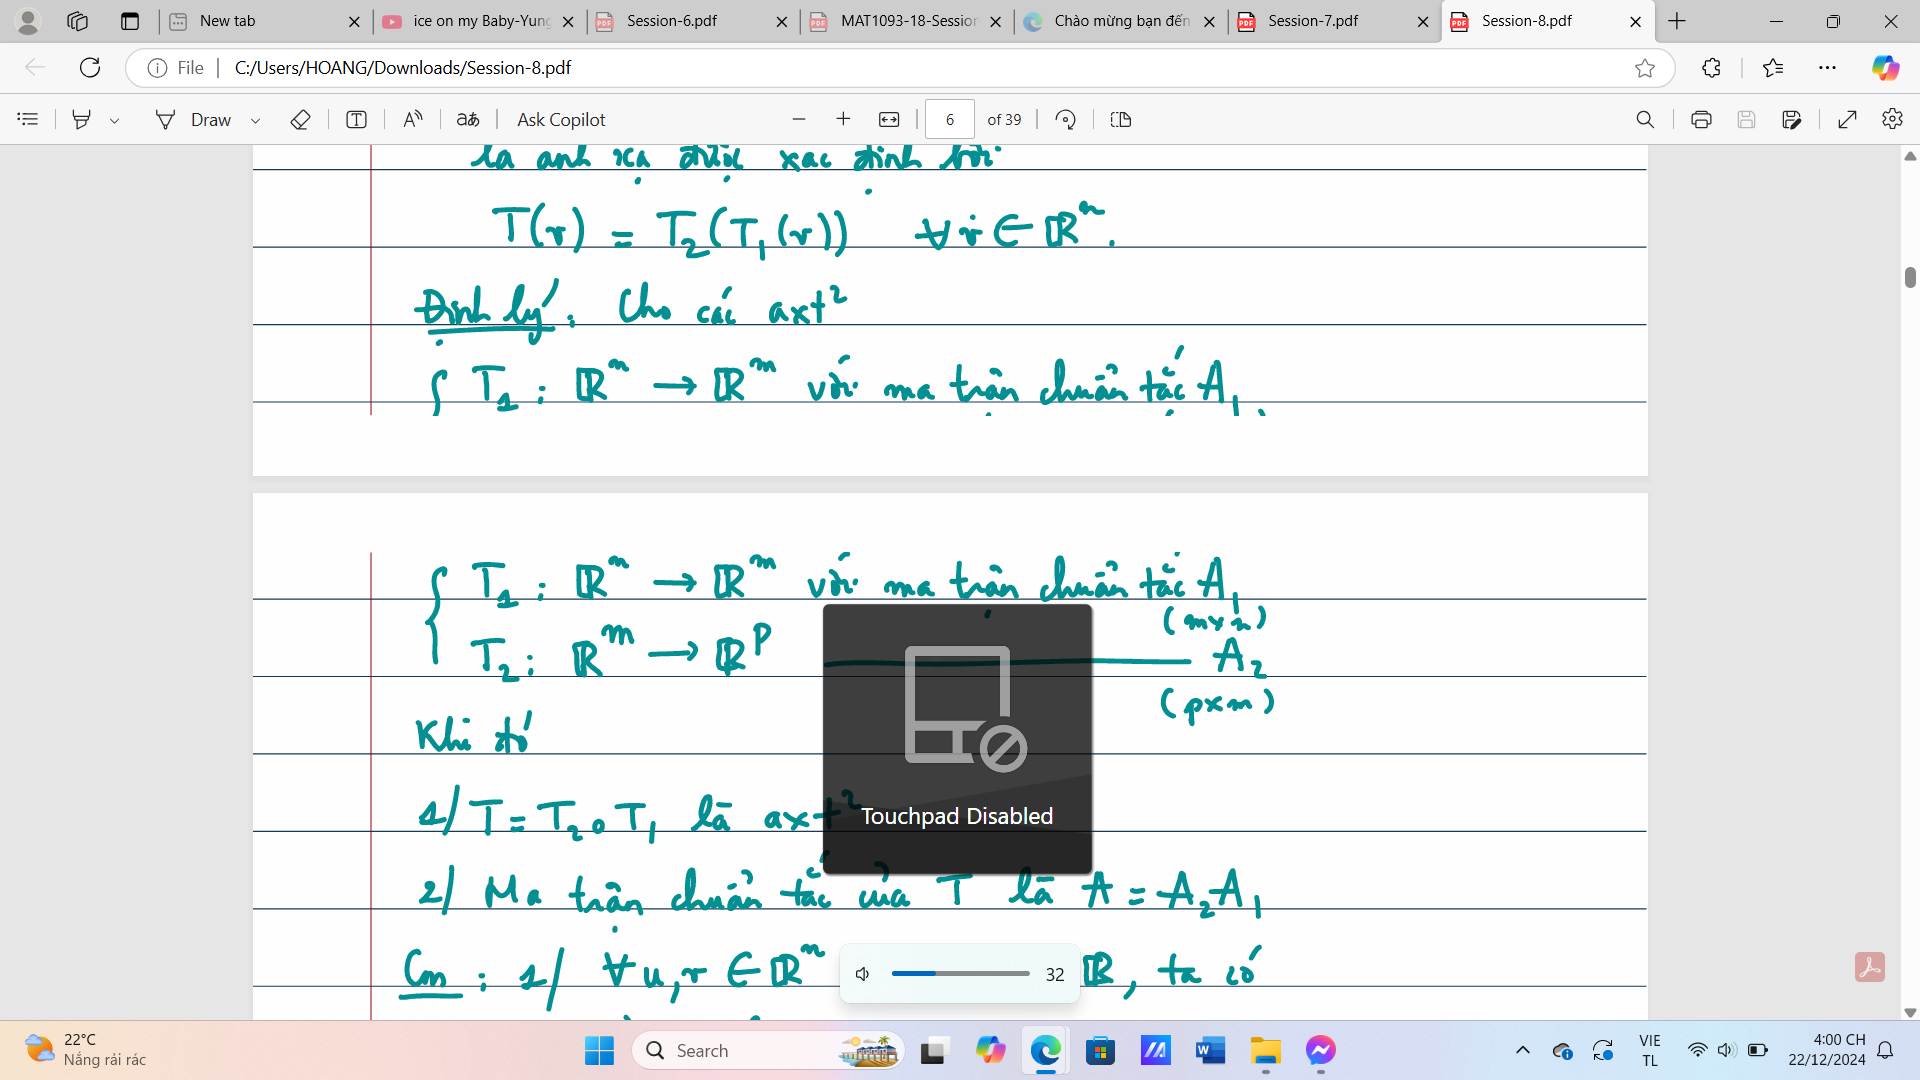 New tab
ice on my Baby-Yung
Session-6.pdf
MAT1093-18-Session
Chào mừng bạn đến
Session-7.pdf
Session-8.pdf
File
C:/Users/HOANG/Downloads/Session-8.pdf
Draw
aあ
Ask Copilot
6 of 39
là ánh xạ được xác định bởi
T(v) = T₂(T₁(v)) ∀v ∈ ℝⁿ.
Định lý: Cho các axt²
{ T₁: ℝⁿ → ℝᵐ với ma trận chuẩn tắc A₁
{ T₁: ℝⁿ → ℝᵐ với ma trận chuẩn tắc A₁
(m×n)
T₂: ℝᵐ → ℝᵖ ——— A₂
(p×m)
Khi đó
Touchpad Disabled
1/ T = T₂∘T₁ là axt²
2/ Ma trận chuẩn tắc của T là A = A₂A₁
Cm: 1/ ∀u,v ∈ ℝⁿ ℝ, ta có
32
22°C
Nắng rải rác
Search
VIE
TL
4:00 CH
22/12/2024